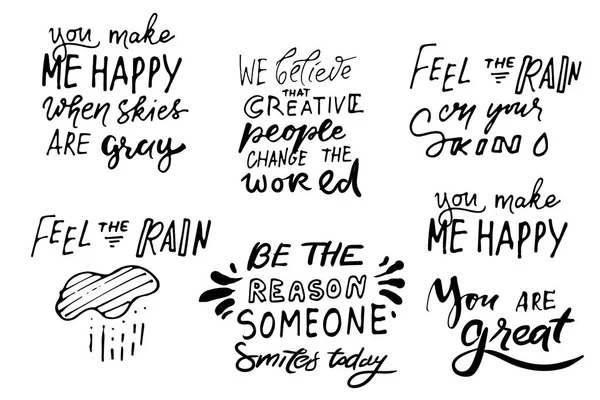 you make
ME HAPPY
when skies
ARE gray
WE believe
THAT
CREATIVE
people
CHANGE THE
world
FEEL THE RAIN
on your
SKIN
FEEL THE RAIN
BE THE
REASON
SOMEONE
Smiles today
you make
ME HAPPY
You ARE
great